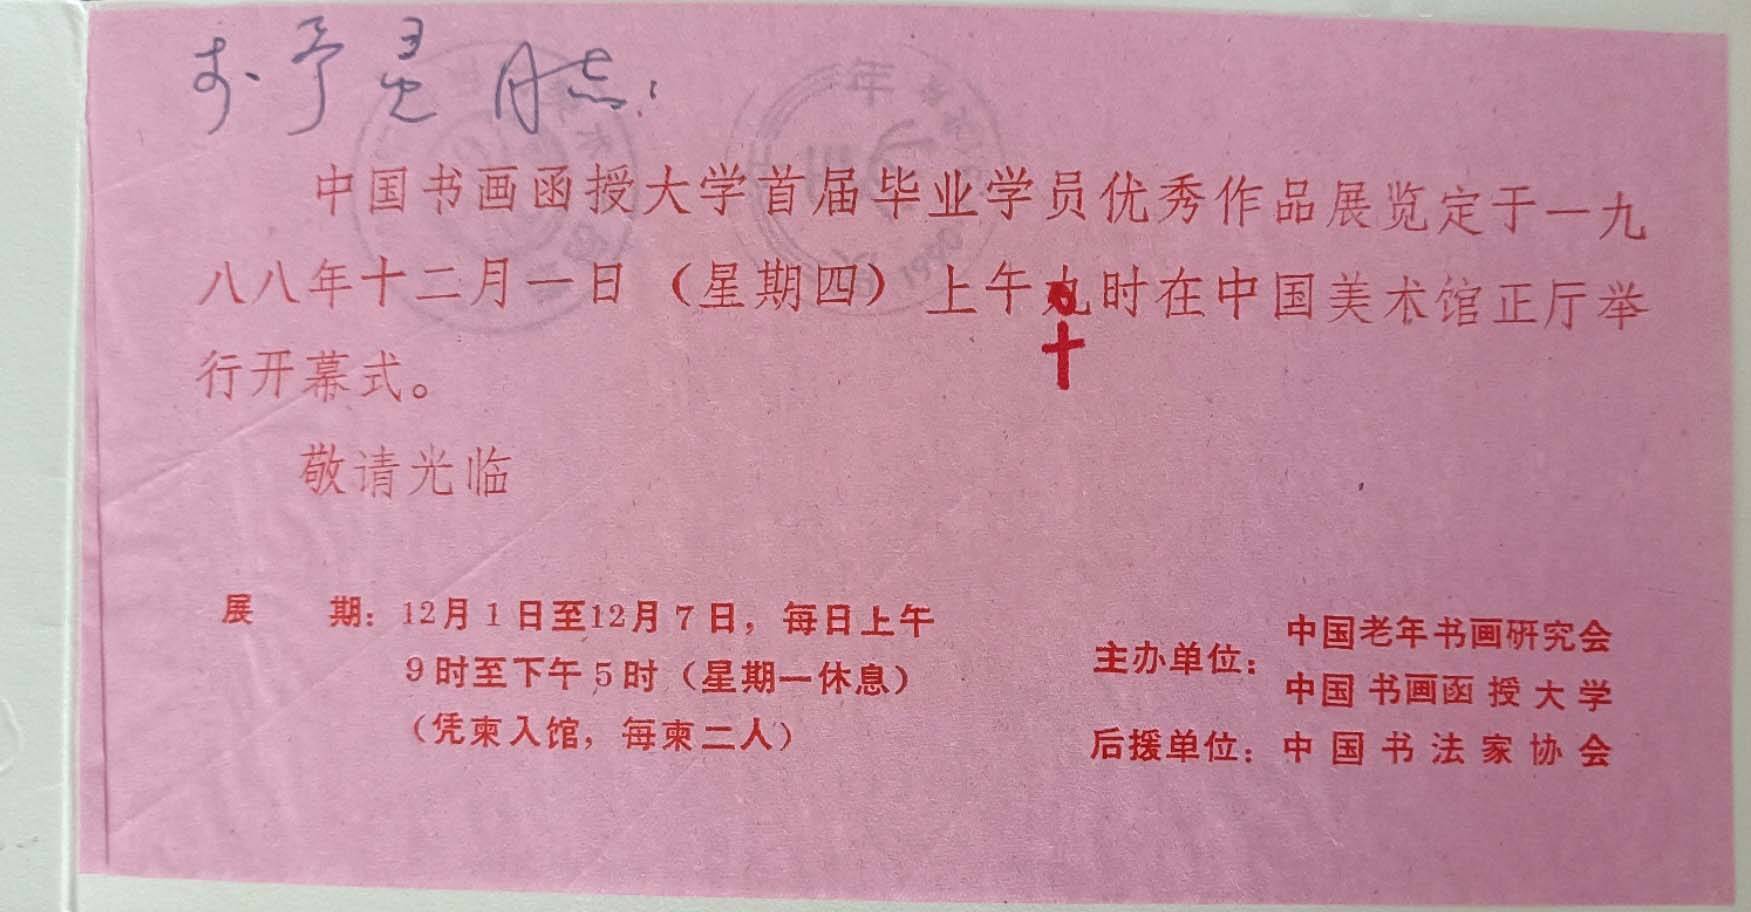 同志：
中国书画函授大学首届毕业学员优秀作品展览定于一九
八八年十二月一日（星期四）上午九时在中国美术馆正厅举
十
行开幕式。
敬请光临
展　　期：12月1日至12月7日，每日上午
9时至下午5时（星期一休息）
（凭柬入馆，每柬二人）
主办单位：中国老年书画研究会
中国书画函授大学
后援单位：中国书法家协会